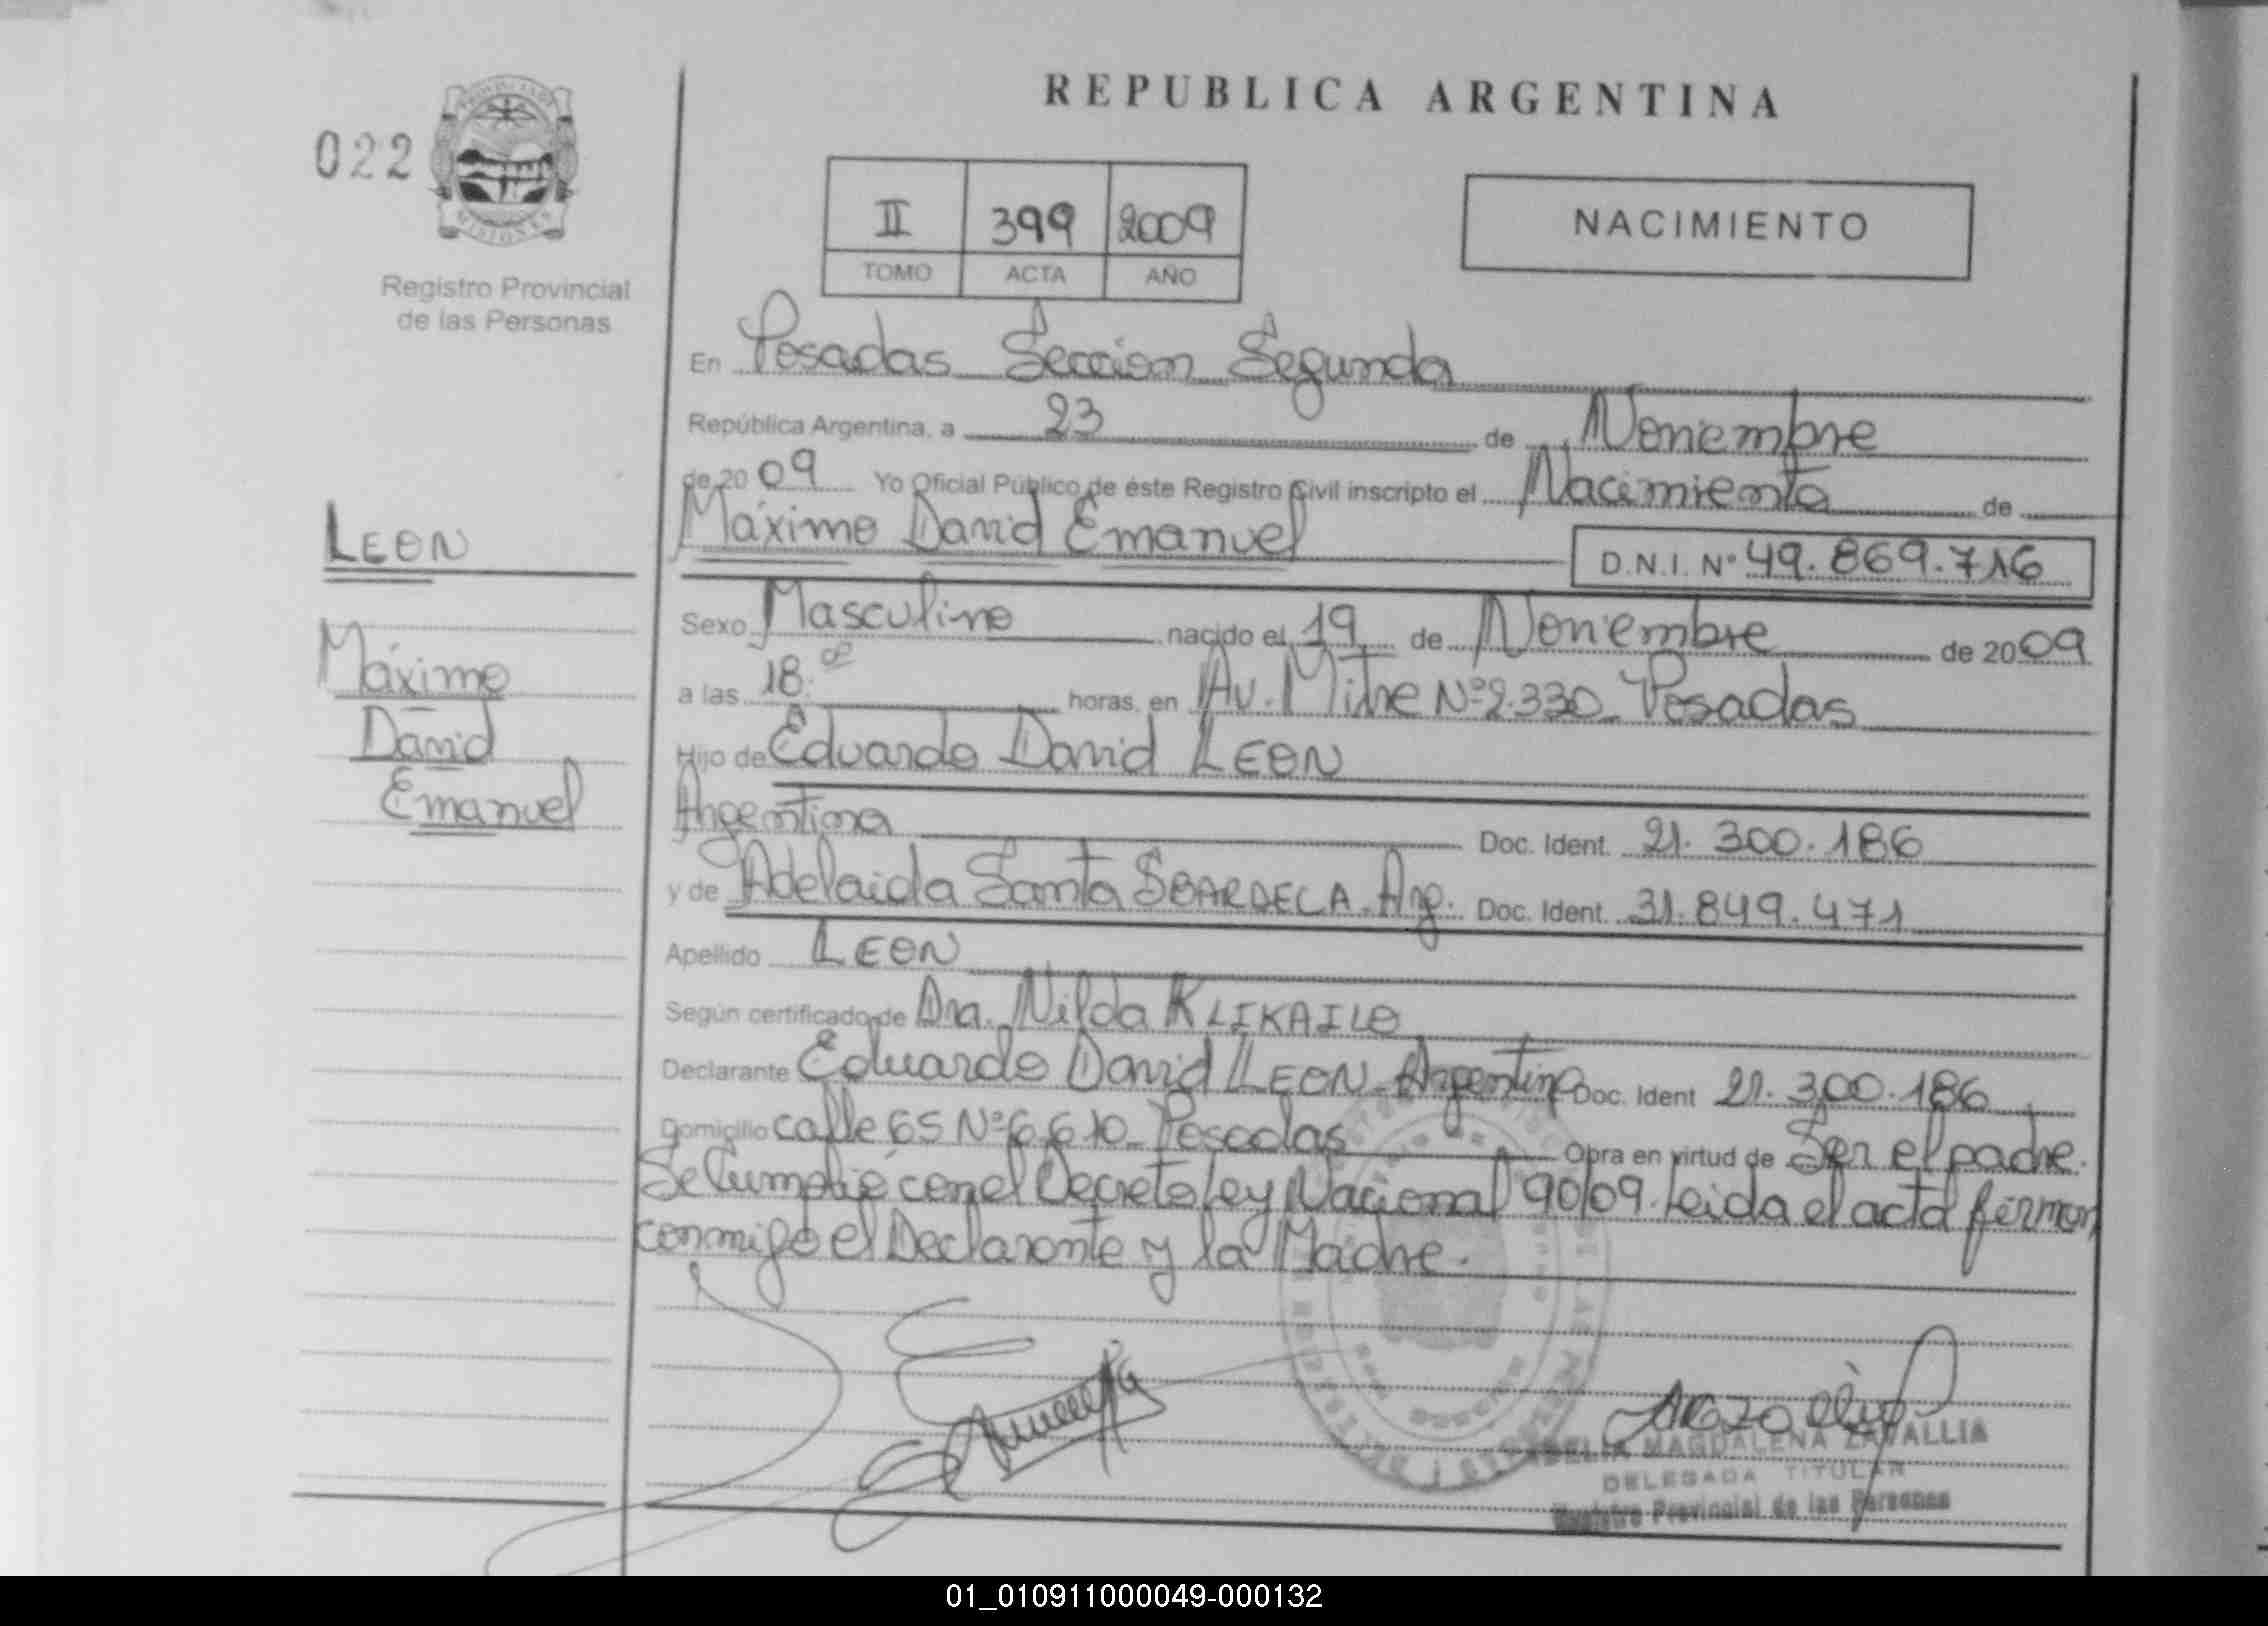 REPUBLICA ARGENTINA
022
PROVINCIA DE
MISIONES
Registro Provincial
de las Personas
II 399 2009
TOMO ACTA AÑO
NACIMIENTO
En Posadas Seccion Segunda
República Argentina, a 23 de Noviembre
de 2009 Yo Oficial Público de éste Registro Civil inscripto el Nacimiento de
Máximo David Emanuel
D.N.I. Nº 49.869.716
LEON
Máximo
David
Emanuel
Sexo Masculino nacido el 19 de Noviembre de 2009
a las 18.00 horas, en Av. Mitre Nº 2.330 Posadas
Hijo de Eduardo David LEON
Argentina Doc. Ident. 21.300.186
y de Adelaida Santa SBARDELA. Arg. Doc. Ident. 31.849.471
Apellido LEON
Según certificado de Dra. Nilda KLIKAILO
Declarante Eduardo David LEON Argentino Doc. Ident 21.300.186
Domicilio calle 65 Nº 6.610 Posadas Obra en virtud de Ser el padre.
Se Cumplió con el Decreto Ley Nacional 90/09. Leida el acta firman
conmigo el Declarante y la Madre.
MAGDALENA ZAVALLIA
DELEGADA TITULAR
Registro Provincial de las Personas
01_010911000049-000132